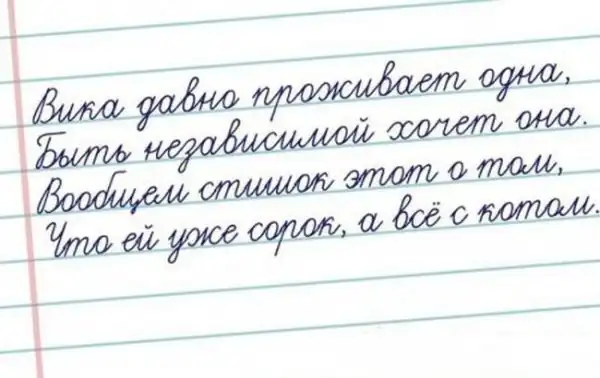 Вика давно проживает одна,
Быть независимой хочет она.
Вообщем стишок этот о том,
Что ей уже сорок, а всё с котом.